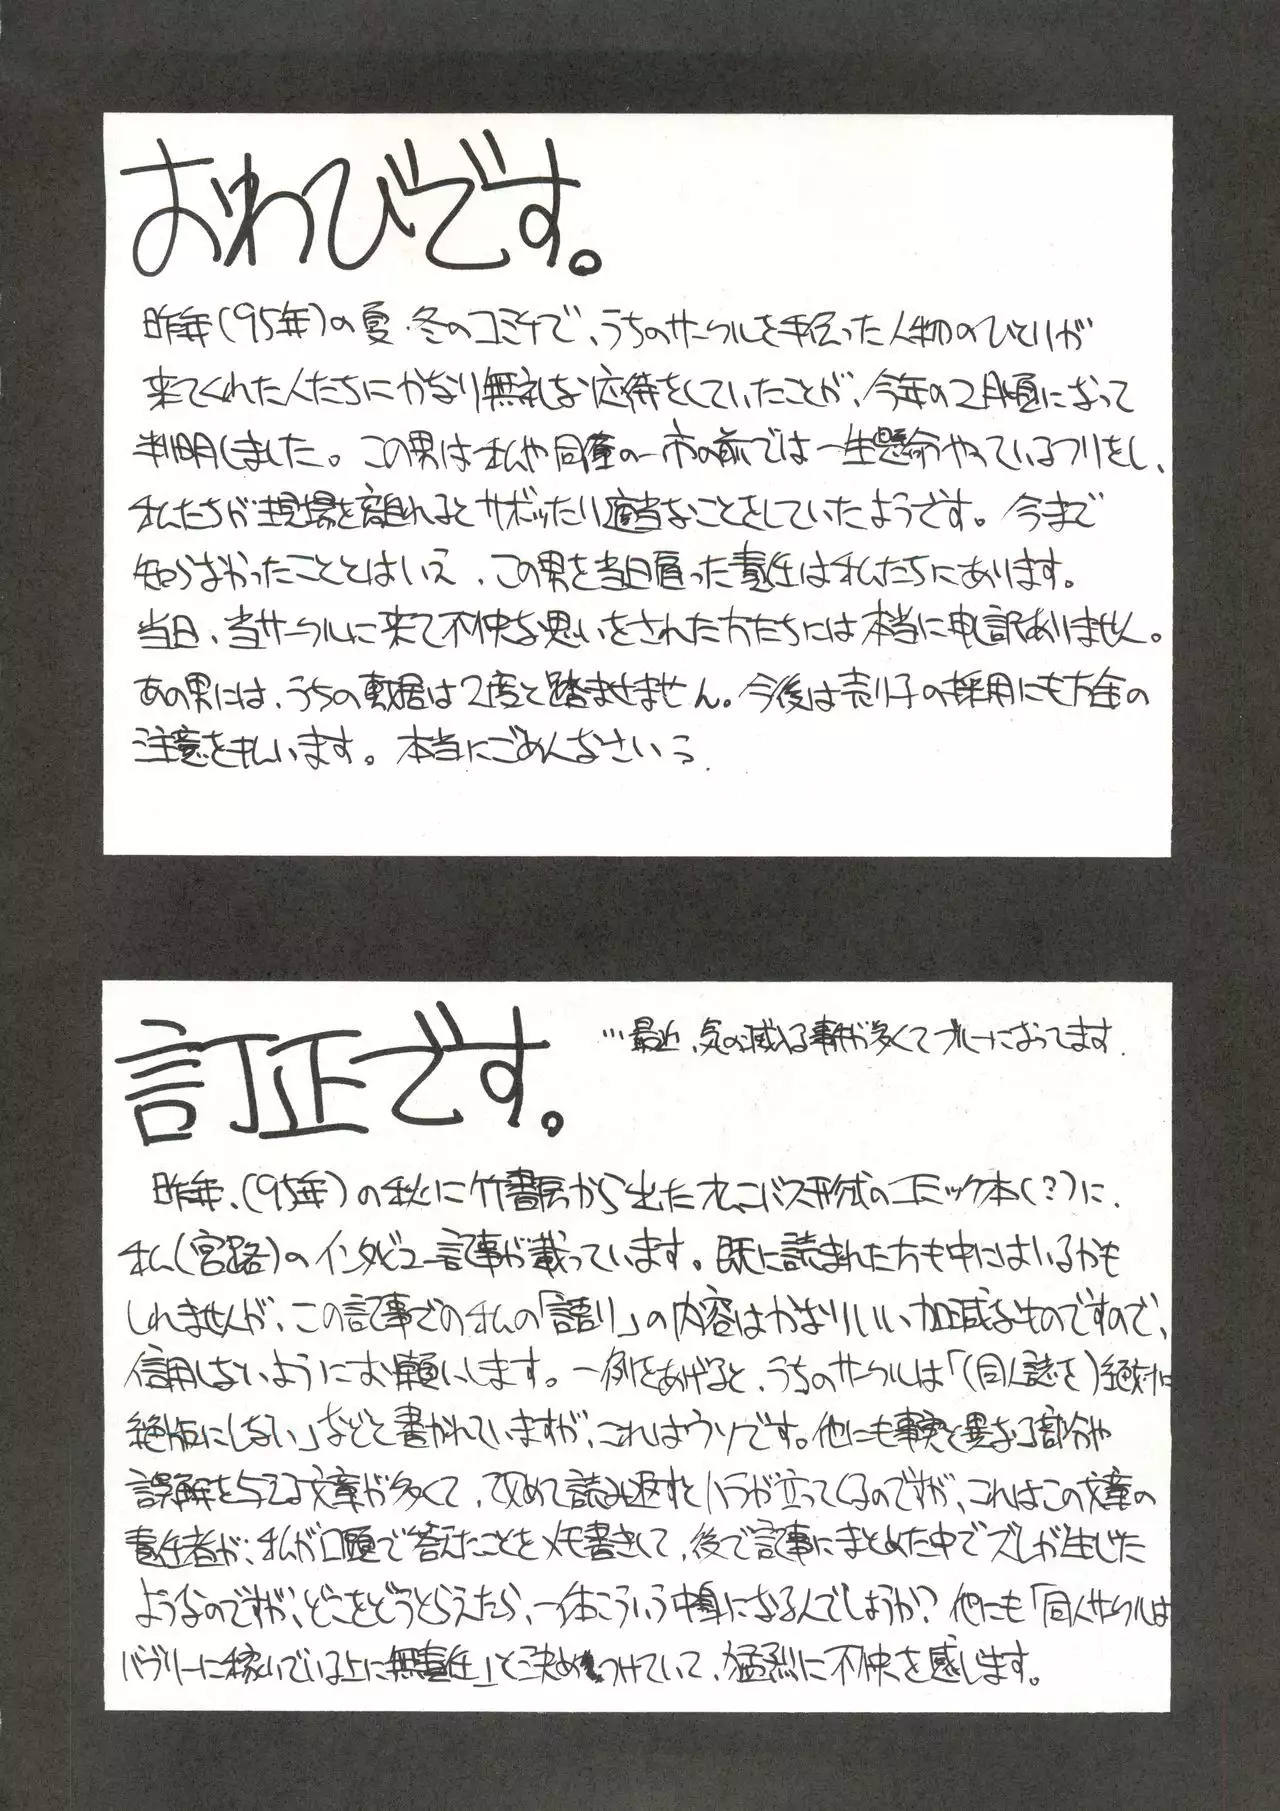 おわびです。
昨年(95年)の夏・冬のコミケで、うちのサークルを手伝った人物のひとりが
来てくれた人たちにかなり無礼な応待をしていたことが、今年の2月頃になって
判明しました。この男は私や同僚の一市の前では一生懸命やっているフリをし、
私たちが現場を離れるとサボッたり適当なことをしていたようです。今まで
知らなかったこととはいえ、この男を当日雇った責任は私たちにあります。
当日、当サークルに来て不快な思いをされた方たちには本当に申し訳ありません。
あの男には、うちの敷居は2度と踏ませません。今後は売り子の採用にも万全の
注意を払います。本当にごめんなさいっ.
訂正です。
…最近、気の滅入る事件が多くてブルーになってます.
昨年、(95年)の秋に竹書房から出たオムニバス形式のコミック本(?)に、
私(宮路)のインタビュー記事が載っています。既に読まれた方も中にはいるかも
しれませんが、この記事での私の「語り」の内容はかなりいい加減なものですので、
信用しないようにお願いします。一例をあげると、うちのサークルは「(同人誌を)絶対に
絶版にしない」などと書かれていますが、これはウソです。他にも事実と異なる部分や
誤解を与える文章が多くて、改めて読み返すとハラが立ってくるのですが、これはこの文章の
責任者が、私が口頭で答えたことをメモ書きして、後で記事にまとめた中でズレが生じた
ようなのですが、どこをどうとらえたら、一体こういう中身になるんでしょうか?他にも「同人サークルは
バブリーに稼いでいる上に無責任」と決めつけていて、猛烈に不快を感じます。